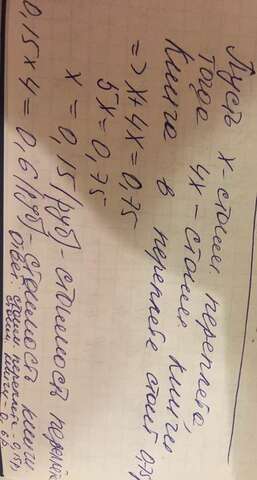 Пусть х - стоим. переплета,
Тогда 4х - стоим. книги.
Книга в переплете стоит 0,75
=> х + 4х = 0,75
5х = 0,75
х = 0,15 (руб) - стоимость перепле
0,15 х 4 = 0,6 (руб) - стоимость книги
Ответ: стоим. переплета 0,15р,
стоим. книги - 0,6р